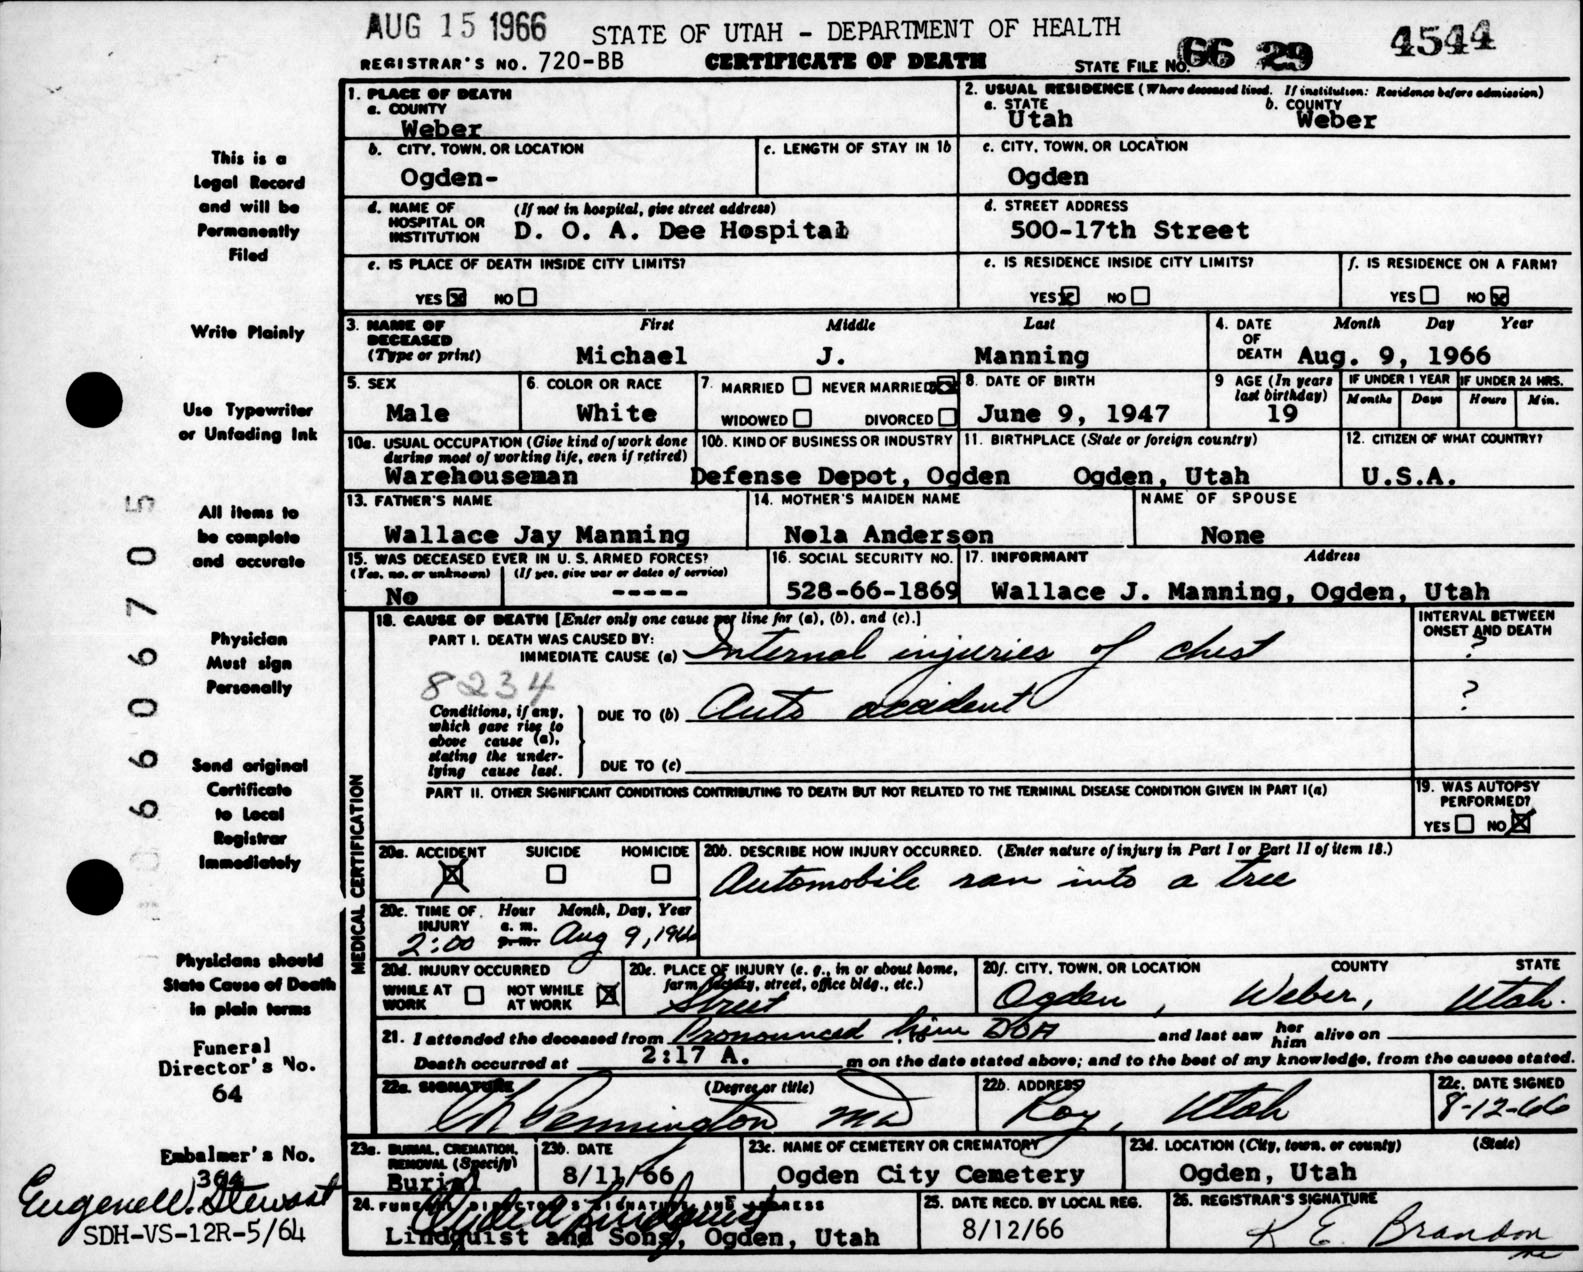 AUG 15 1966 STATE OF UTAH - DEPARTMENT OF HEALTH 4544
REGISTRAR'S NO. 720-BB CERTIFICATE OF DEATH STATE FILE NO. 66 29
1. PLACE OF DEATH
a. COUNTY
Weber
2. USUAL RESIDENCE (Where deceased lived. If institution: Residence before admission)
a. STATE b. COUNTY
Utah Weber
b. CITY, TOWN, OR LOCATION
Ogden-
c. LENGTH OF STAY IN 1b
c. CITY, TOWN, OR LOCATION
Ogden
d. NAME OF HOSPITAL OR INSTITUTION (If not in hospital, give street address)
D. O. A. Dee Hospital
d. STREET ADDRESS
500-17th Street
e. IS PLACE OF DEATH INSIDE CITY LIMITS?
YES X NO
e. IS RESIDENCE INSIDE CITY LIMITS?
YES X NO
f. IS RESIDENCE ON A FARM?
YES NO X
3. NAME OF DECEASED (Type or print) First Middle Last
Michael J. Manning
4. DATE OF DEATH Month Day Year
Aug. 9, 1966
5. SEX
Male
6. COLOR OR RACE
White
7. MARRIED NEVER MARRIED X
WIDOWED DIVORCED
8. DATE OF BIRTH
June 9, 1947
9 AGE (In years last birthday)
19
IF UNDER 1 YEAR IF UNDER 24 HRS.
Months Days Hours Min.
10a. USUAL OCCUPATION (Give kind of work done during most of working life, even if retired)
Warehouseman
10b. KIND OF BUSINESS OR INDUSTRY
Defense Depot, Ogden
11. BIRTHPLACE (State or foreign country)
Ogden, Utah
12. CITIZEN OF WHAT COUNTRY?
U.S.A.
13. FATHER'S NAME
Wallace Jay Manning
14. MOTHER'S MAIDEN NAME
Nola Anderson
NAME OF SPOUSE
None
15. WAS DECEASED EVER IN U. S. ARMED FORCES?
(Yes, no, or unknown) (If yes, give war or dates of service)
No -----
16. SOCIAL SECURITY NO.
528-66-1869
17. INFORMANT Address
Wallace J. Manning, Ogden, Utah
MEDICAL CERTIFICATION
18. CAUSE OF DEATH [Enter only one cause per line for (a), (b), and (c).]
INTERVAL BETWEEN ONSET AND DEATH
PART I. DEATH WAS CAUSED BY:
IMMEDIATE CAUSE (a) Internal injuries of chest ?
8234
Conditions, if any, which gave rise to above cause (a), stating the underlying cause last.
DUE TO (b) Auto accident ?
DUE TO (c)
PART II. OTHER SIGNIFICANT CONDITIONS CONTRIBUTING TO DEATH BUT NOT RELATED TO THE TERMINAL DISEASE CONDITION GIVEN IN PART I(a)
19. WAS AUTOPSY PERFORMED?
YES NO X
20a. ACCIDENT SUICIDE HOMICIDE
X
20b. DESCRIBE HOW INJURY OCCURRED. (Enter nature of injury in Part I or Part II of item 18.)
Automobile ran into a tree
20c. TIME OF INJURY Hour Month, Day, Year
2:00 a. m. p. m. Aug 9, 1966
20d. INJURY OCCURRED
WHILE AT WORK NOT WHILE AT WORK X
20e. PLACE OF INJURY (e. g., in or about home, farm, factory, street, office bldg., etc.)
Street
20f. CITY, TOWN, OR LOCATION COUNTY STATE
Ogden, Weber, Utah.
21. I attended the deceased from Pronounced him DOA and last saw her him alive on
Death occurred at 2:17 A. m on the date stated above; and to the best of my knowledge, from the causes stated.
22a. SIGNATURE (Degree or title)
Pennington MD
22b. ADDRESS
Roy, Utah
22c. DATE SIGNED
8-12-66
23a. BURIAL, CREMATION, REMOVAL (Specify)
Burial
23b. DATE
8/11/66
23c. NAME OF CEMETERY OR CREMATORY
Ogden City Cemetery
23d. LOCATION (City, town, or county) (State)
Ogden, Utah
24. FUNERAL DIRECTOR'S SIGNATURE AND ADDRESS
Lindquist
Lindquist and Sons, Ogden, Utah
25. DATE RECD. BY LOCAL REG.
8/12/66
26. REGISTRAR'S SIGNATURE
K E. Brandon
This is a
Legal Record
and will be
Permanently
Filed
Write Plainly
Use Typewriter
or Unfading Ink
All items to
be complete
and accurate
Physician
Must sign
Personally
Send original
Certificate
to Local
Registrar
Immediately
Physicians should
State Cause of Death
in plain terms
Funeral
Director's No.
64
Embalmer's No.
364
Eugene W. Stewart
SDH-VS-12R-5/64
06606705